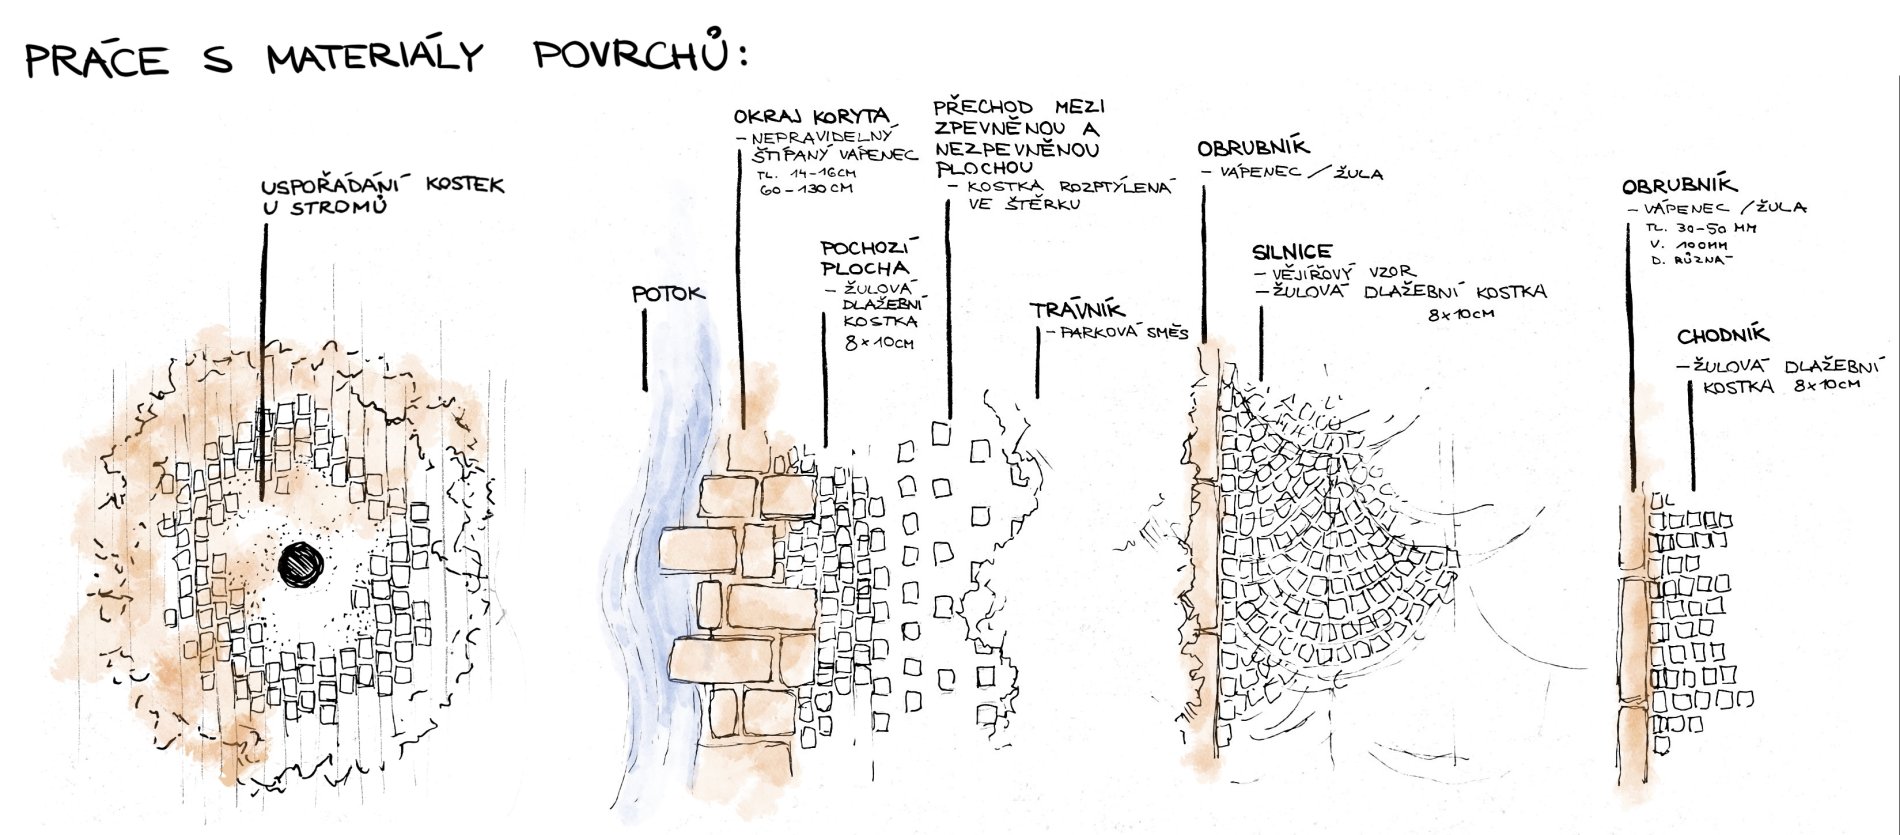 PRÁCE S MATERIÁLY POVRCHŮ:
USPOŘÁDÁNÍ KOSTEK
U STROMŮ
POTOK
OKRAJ KORYTA
- NEPRAVIDELNÝ
ŠTÍPANÝ VÁPENEC
TL. 14-16CM
60-130CM
POCHOZÍ
PLOCHA
- ŽULOVÁ
DLAŽEBNÍ
KOSTKA
8x10CM
PŘECHOD MEZI
ZPEVNĚNOU A
NEZPEVNĚNOU
PLOCHOU
- KOSTKA ROZPTÝLENÁ
VE ŠTĚRKU
TRÁVNÍK
- PARKOVÁ SMĚS
OBRUBNÍK
- VÁPENEC / ŽULA
SILNICE
- VĚJÍŘOVÝ VZOR
- ŽULOVÁ DLAŽEBNÍ KOSTKA
8x10CM
OBRUBNÍK
- VÁPENEC / ŽULA
TL. 30-50 MM
V. 100MM
D. RŮZNÁ
CHODNÍK
- ŽULOVÁ DLAŽEBNÍ
KOSTKA 8x10CM